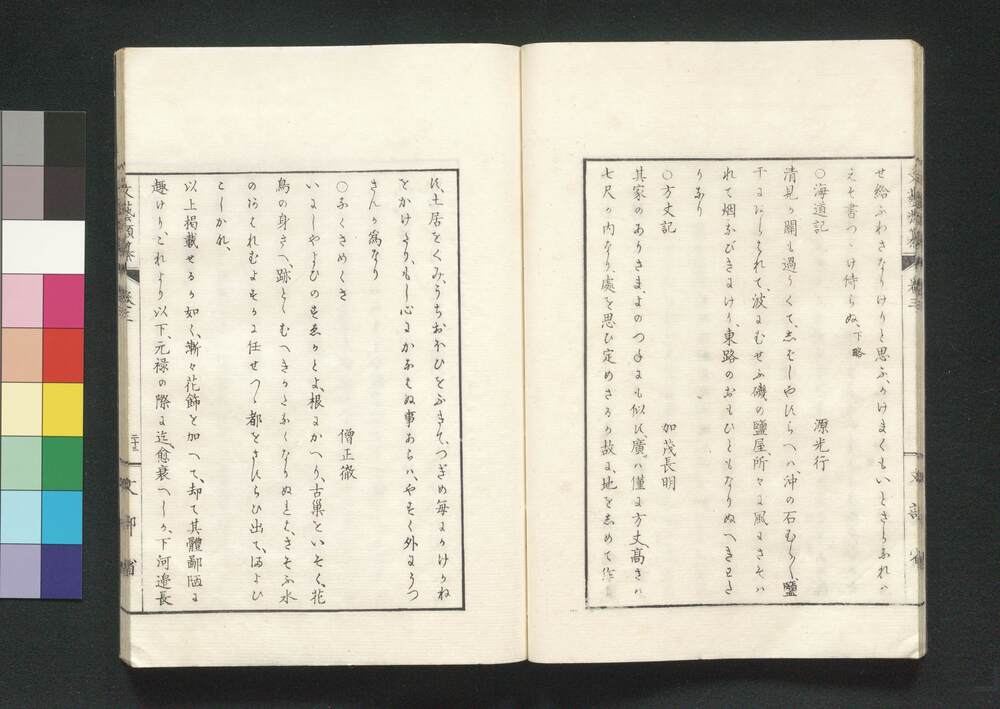 せ給ふわさなりけりと思ふ、かけまくもいときしらふれハ
えそ書つゝけ侍らぬ、下略
○海道記 源光行
清見か關も過うくて、志ばしやすらへハ、沖の石むら〳〵鹽
干にあらはれて、波にむせふ磯の鹽屋、所々に風にさそハ
れて烟なびきにけり、東路のおもひともなりぬへきわた
りなり
○方丈記 加茂長明
其家のありさま、よのつねにも似ひ、廣ハ僅に方丈、高さハ
七尺か内なり、處を思ひ定めさるか故に、地を志めて作
に、土居をくみ、うちおほひをふきて、つぎめ毎にかけかね
をかけたり、もし心にかなはぬ事あらハ、やすく外にうつ
さんか爲なり
○なくさめくさ 僧正徹
いにしやよひのすゑかとよ、根にかへり、古巢といそく、花
鳥の身さへ、跡とゝむへきかたなくなりぬれは、さそふ水
のあはれむよすかに任せつゝ、都をさすらひ出て、およひ
こしかれ、
以上掲載せるか如く、漸々花飾を加へて、却て其體鄙陋に
趣けり、これより以下、元禄の際に迄、愈衰へしか、下河邉長
文藝類纂 卷三 二十三 文部省